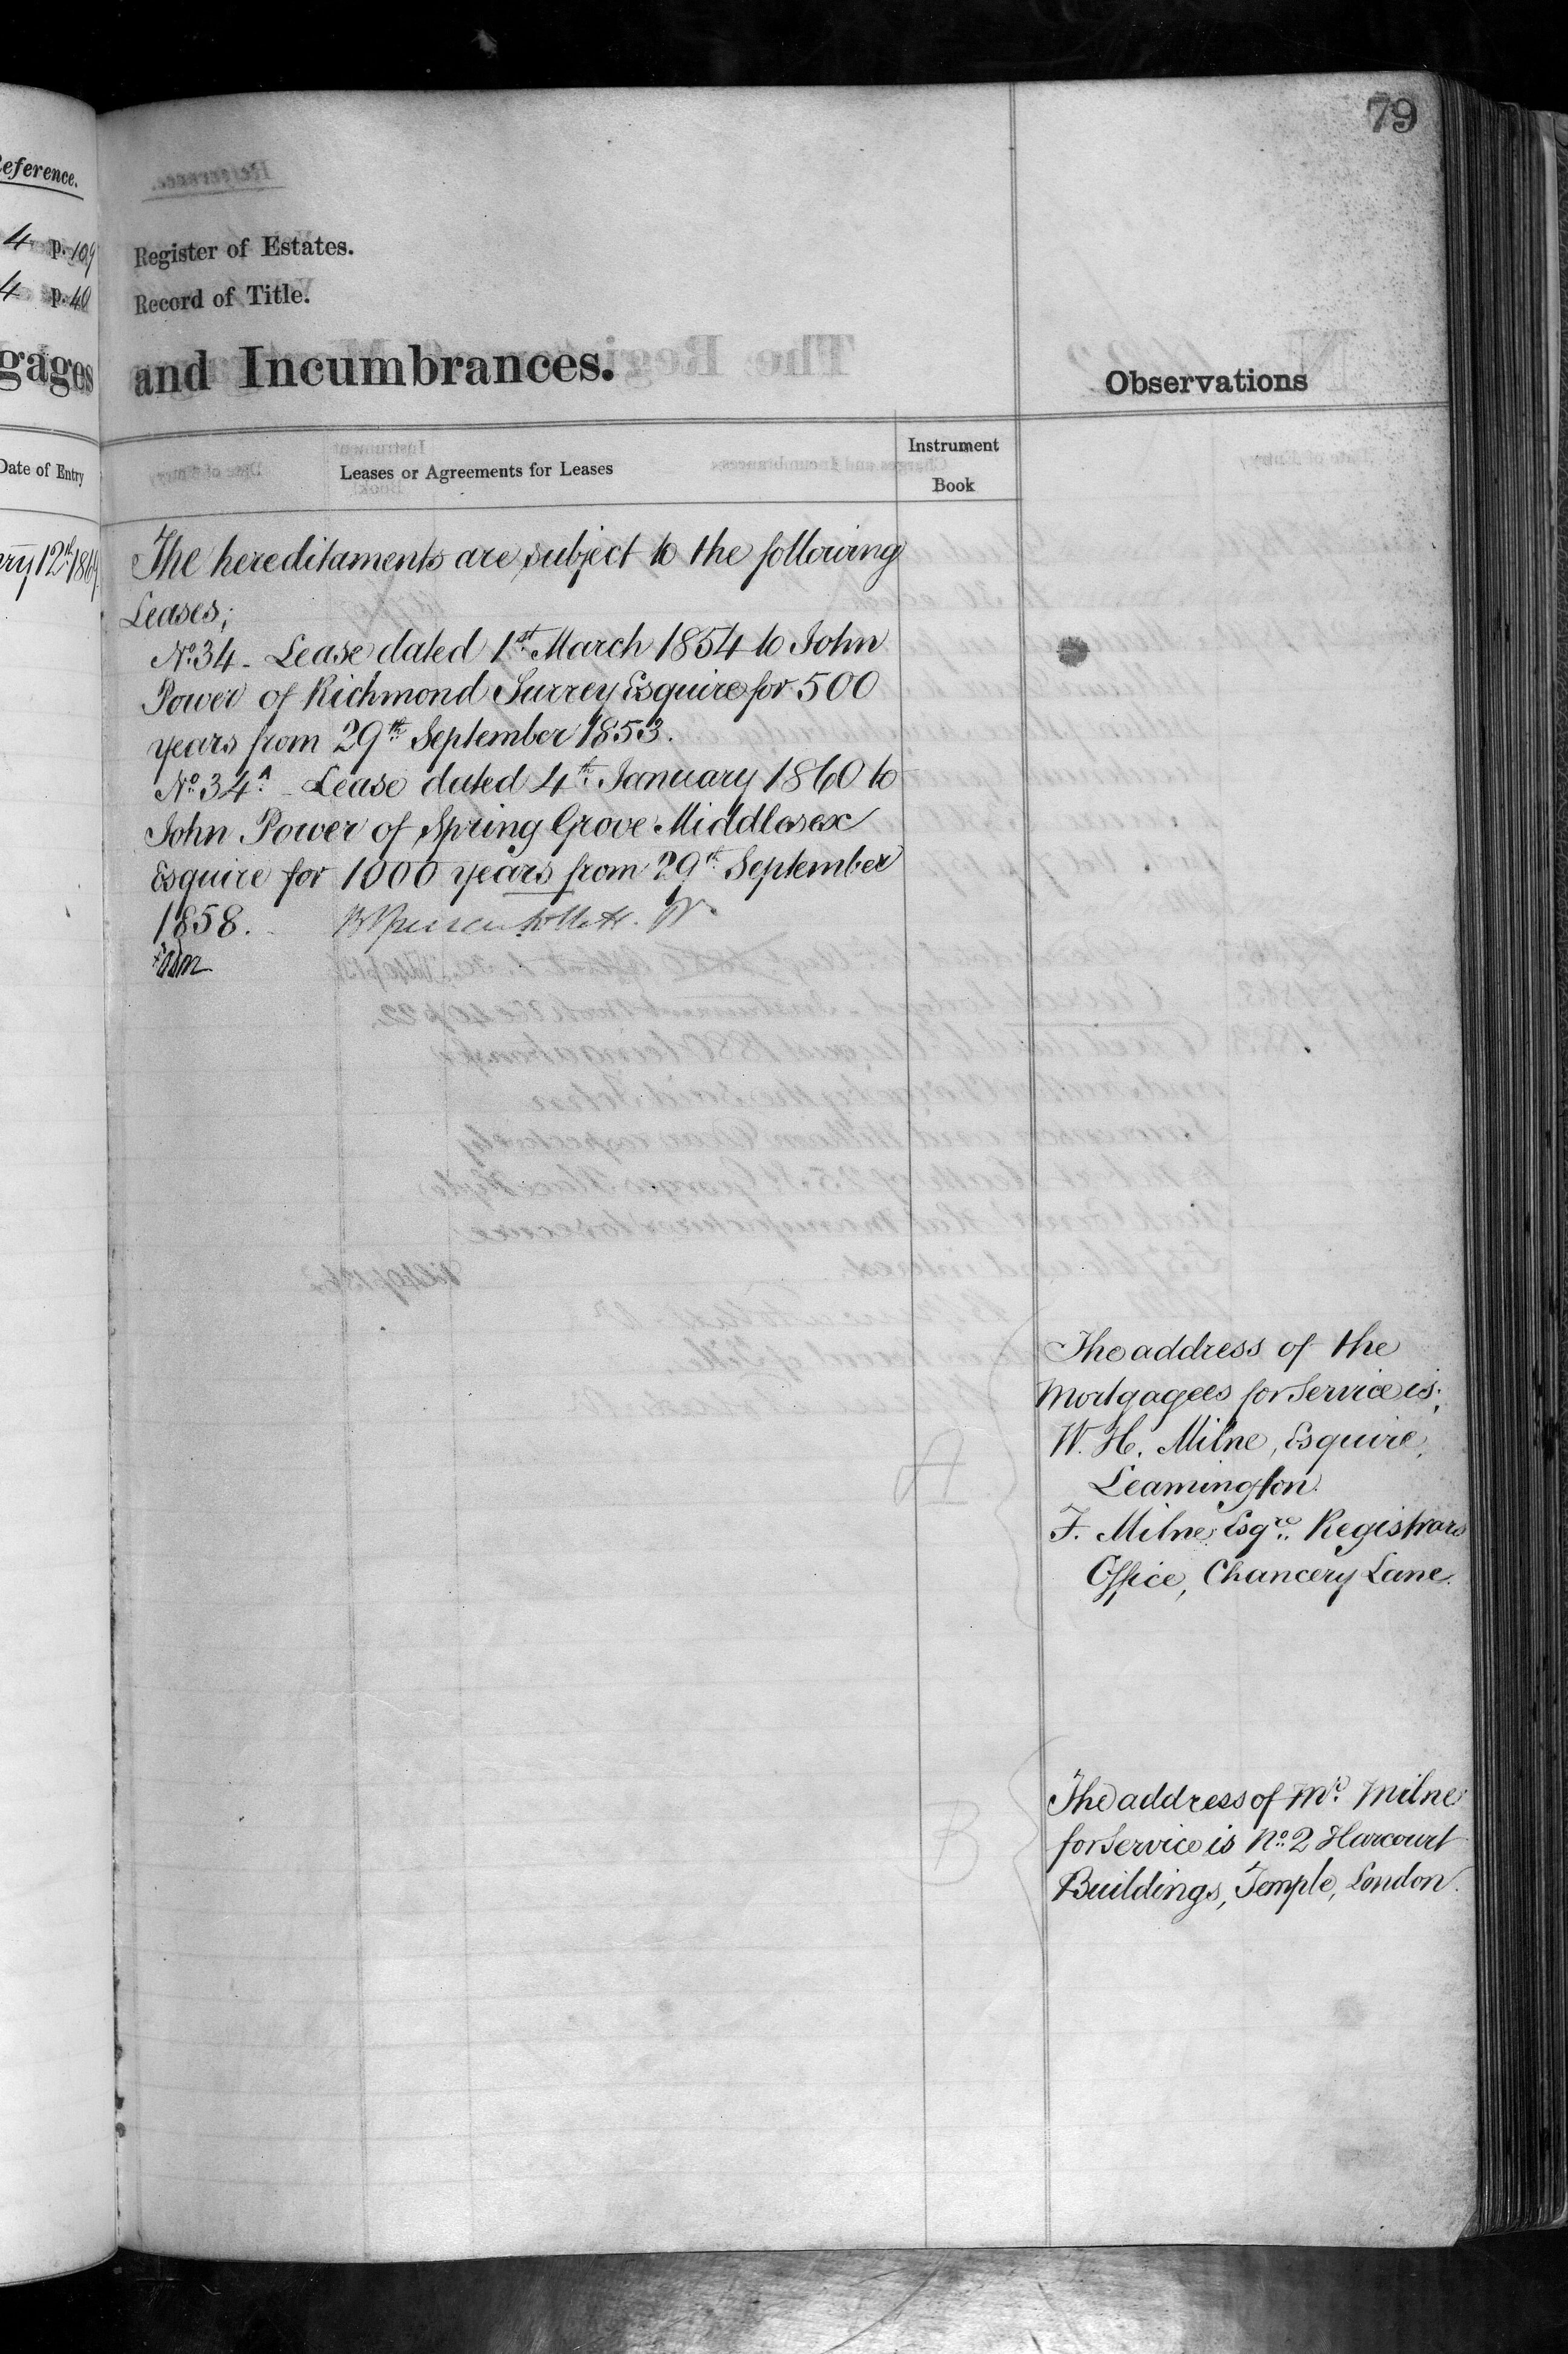 79
Reference.
4 p. 109
4 p. 40
gages
Date of Entry
ry 12th 1869
Register of Estates.
Record of Title.
and Incumbrances.
Observations
Leases or Agreements for Leases
Instrument
Book
The hereditaments are subject to the following
Leases;
No. 34 - Lease dated 1st March 1854 to John
Power of Richmond Surrey Esquire for 500
years from 29th September 1853.
No. 34A - Lease dated 4th January 1860 to
John Power of Spring Grove Middlesex
Esquire for 1000 years from 29th September
1858.
The address of the
Mortgagees for Service is;
W. H. Milne, Esquire,
Leamington.
F. Milne Esqre. Registrars
Office, Chancery Lane.
A
The address of Mr. Milne
for Service is No. 2 Harcourt
Buildings, Temple, London.
B